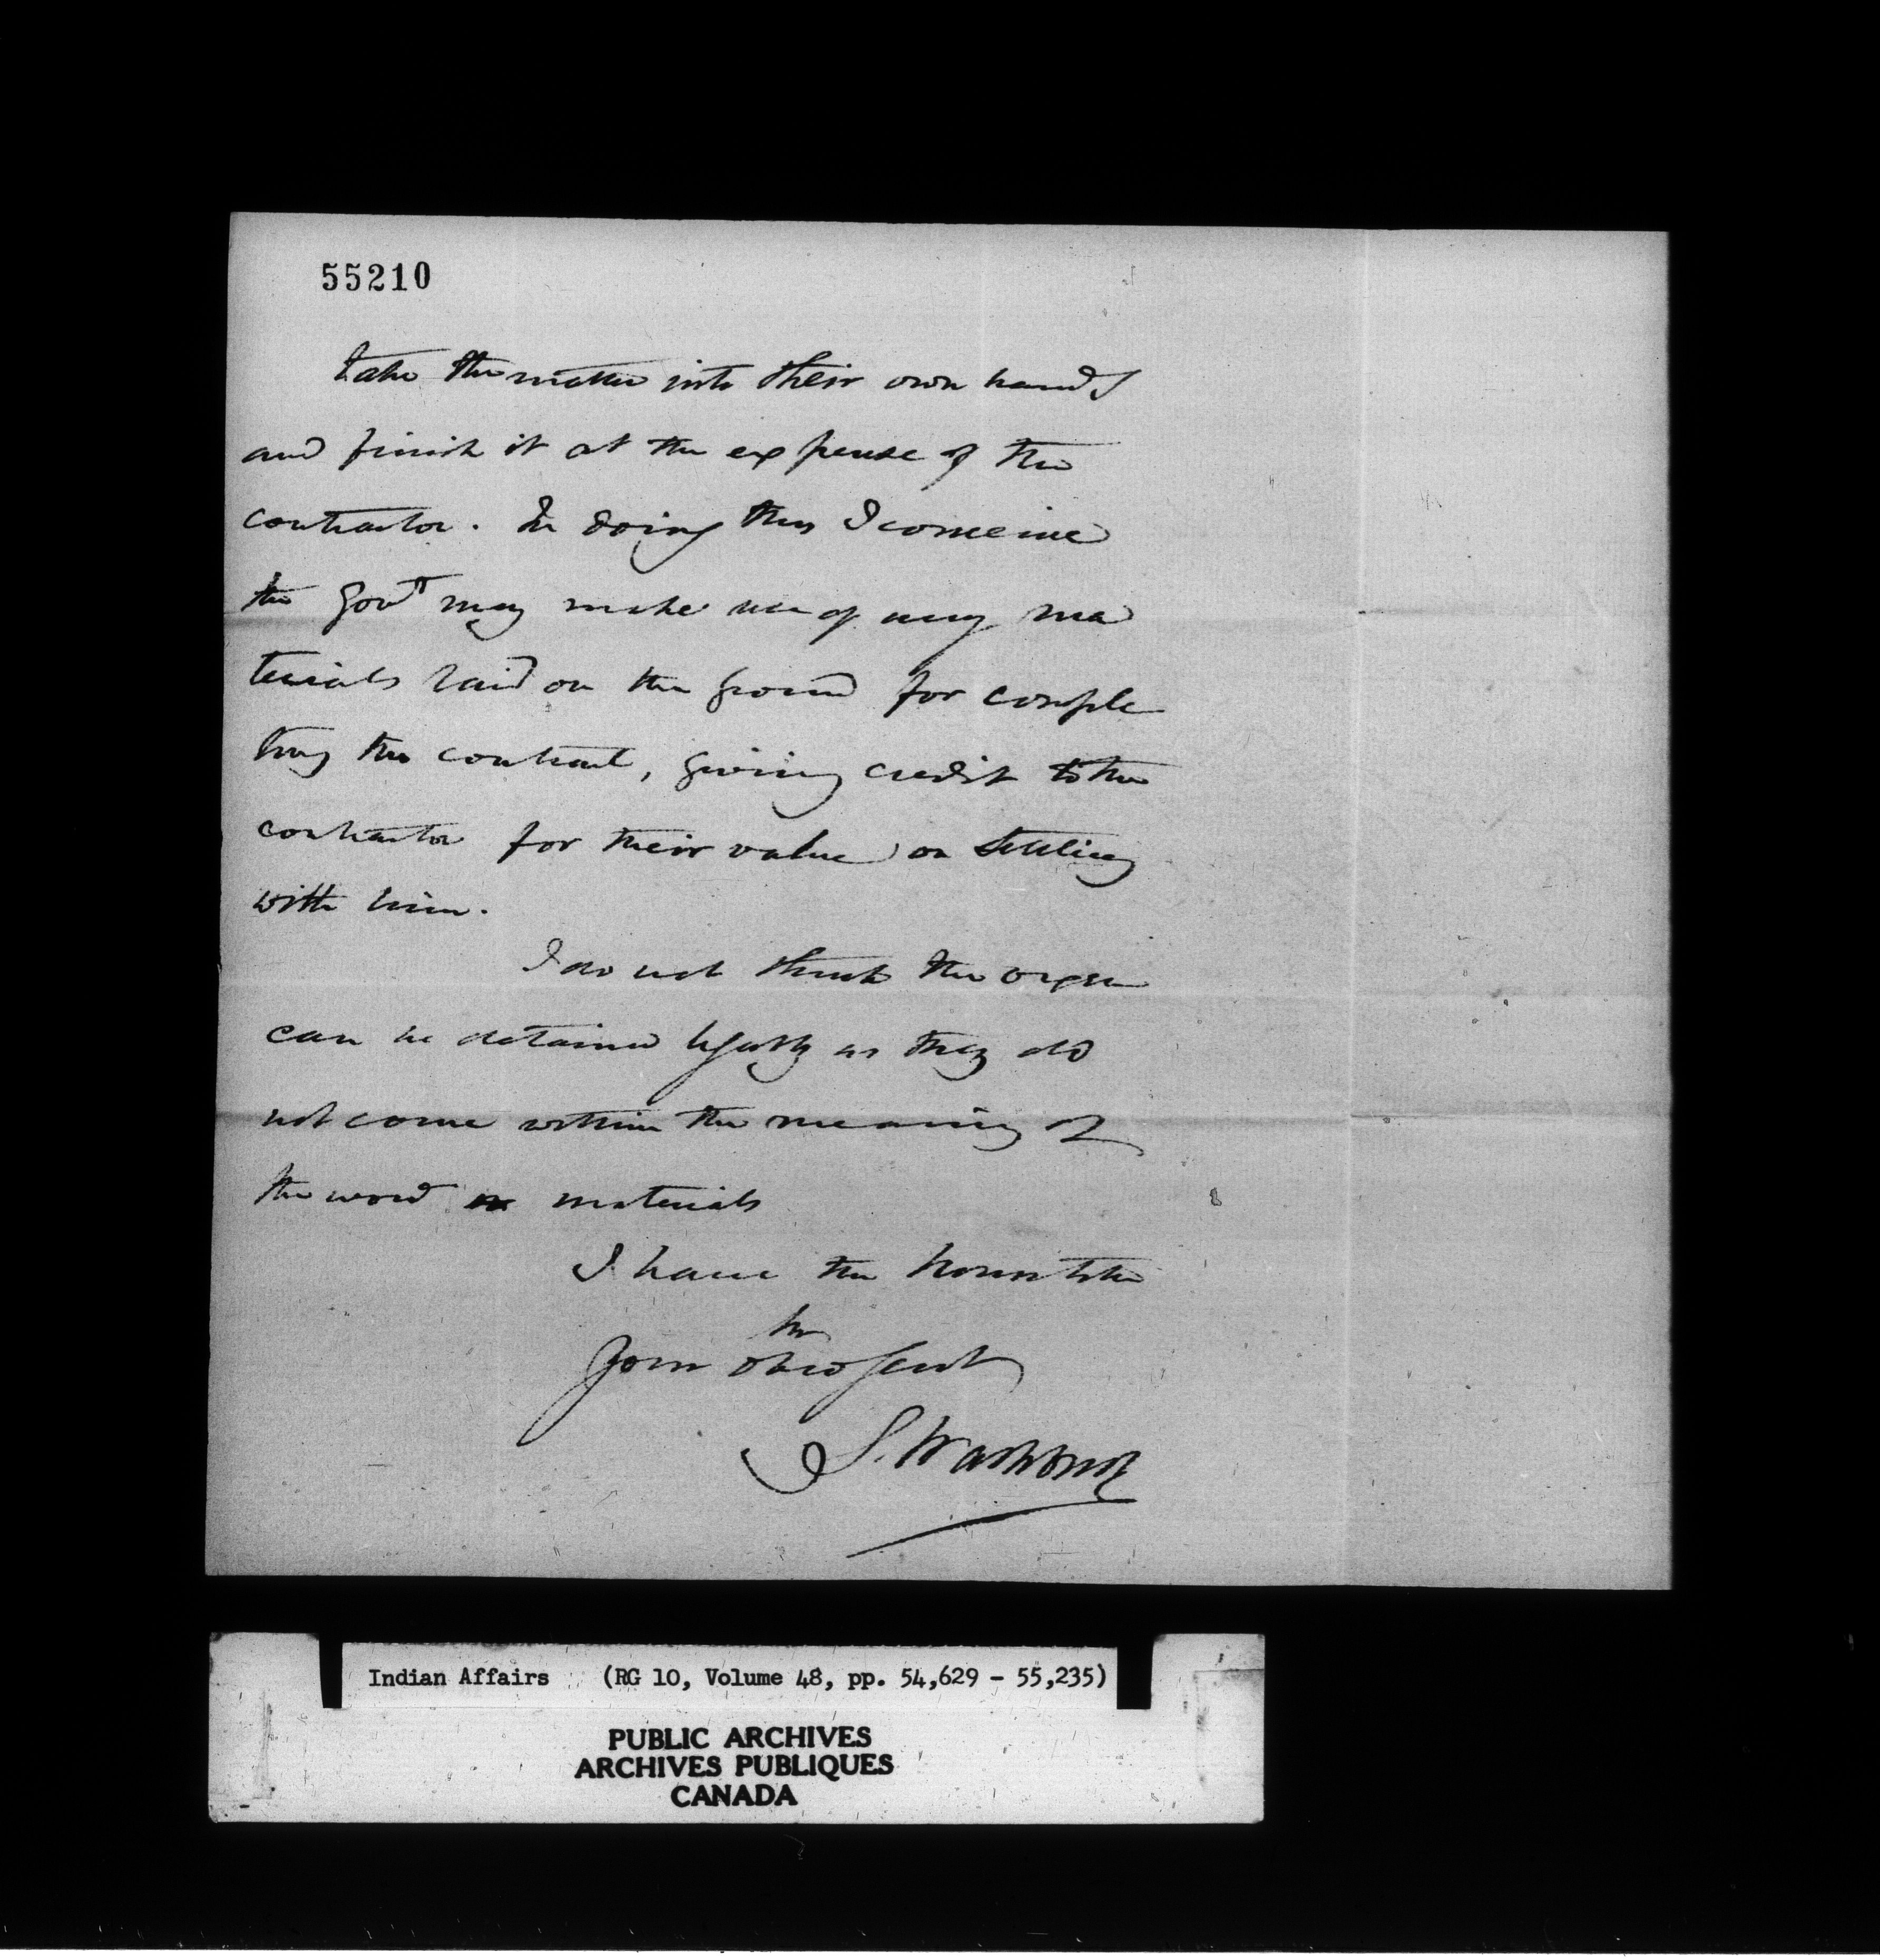 55210
take the matter into their own hands
and finish it at the expense of the
contractor. In doing this I conceive
the Govt may make use of any ma
terials laid on the ground for comple
ting the contract, giving credit to the
contractor for their value on settling
with him.
I do not think the oxen
can be detained legally as they do
not come within the meaning of
the word materials
I have the honor to be
Sir
Your obed Servt
S. Washburn
Indian Affairs (RG 10, Volume 48, pp. 54,629 - 55,235)
PUBLIC ARCHIVES
ARCHIVES PUBLIQUES
CANADA